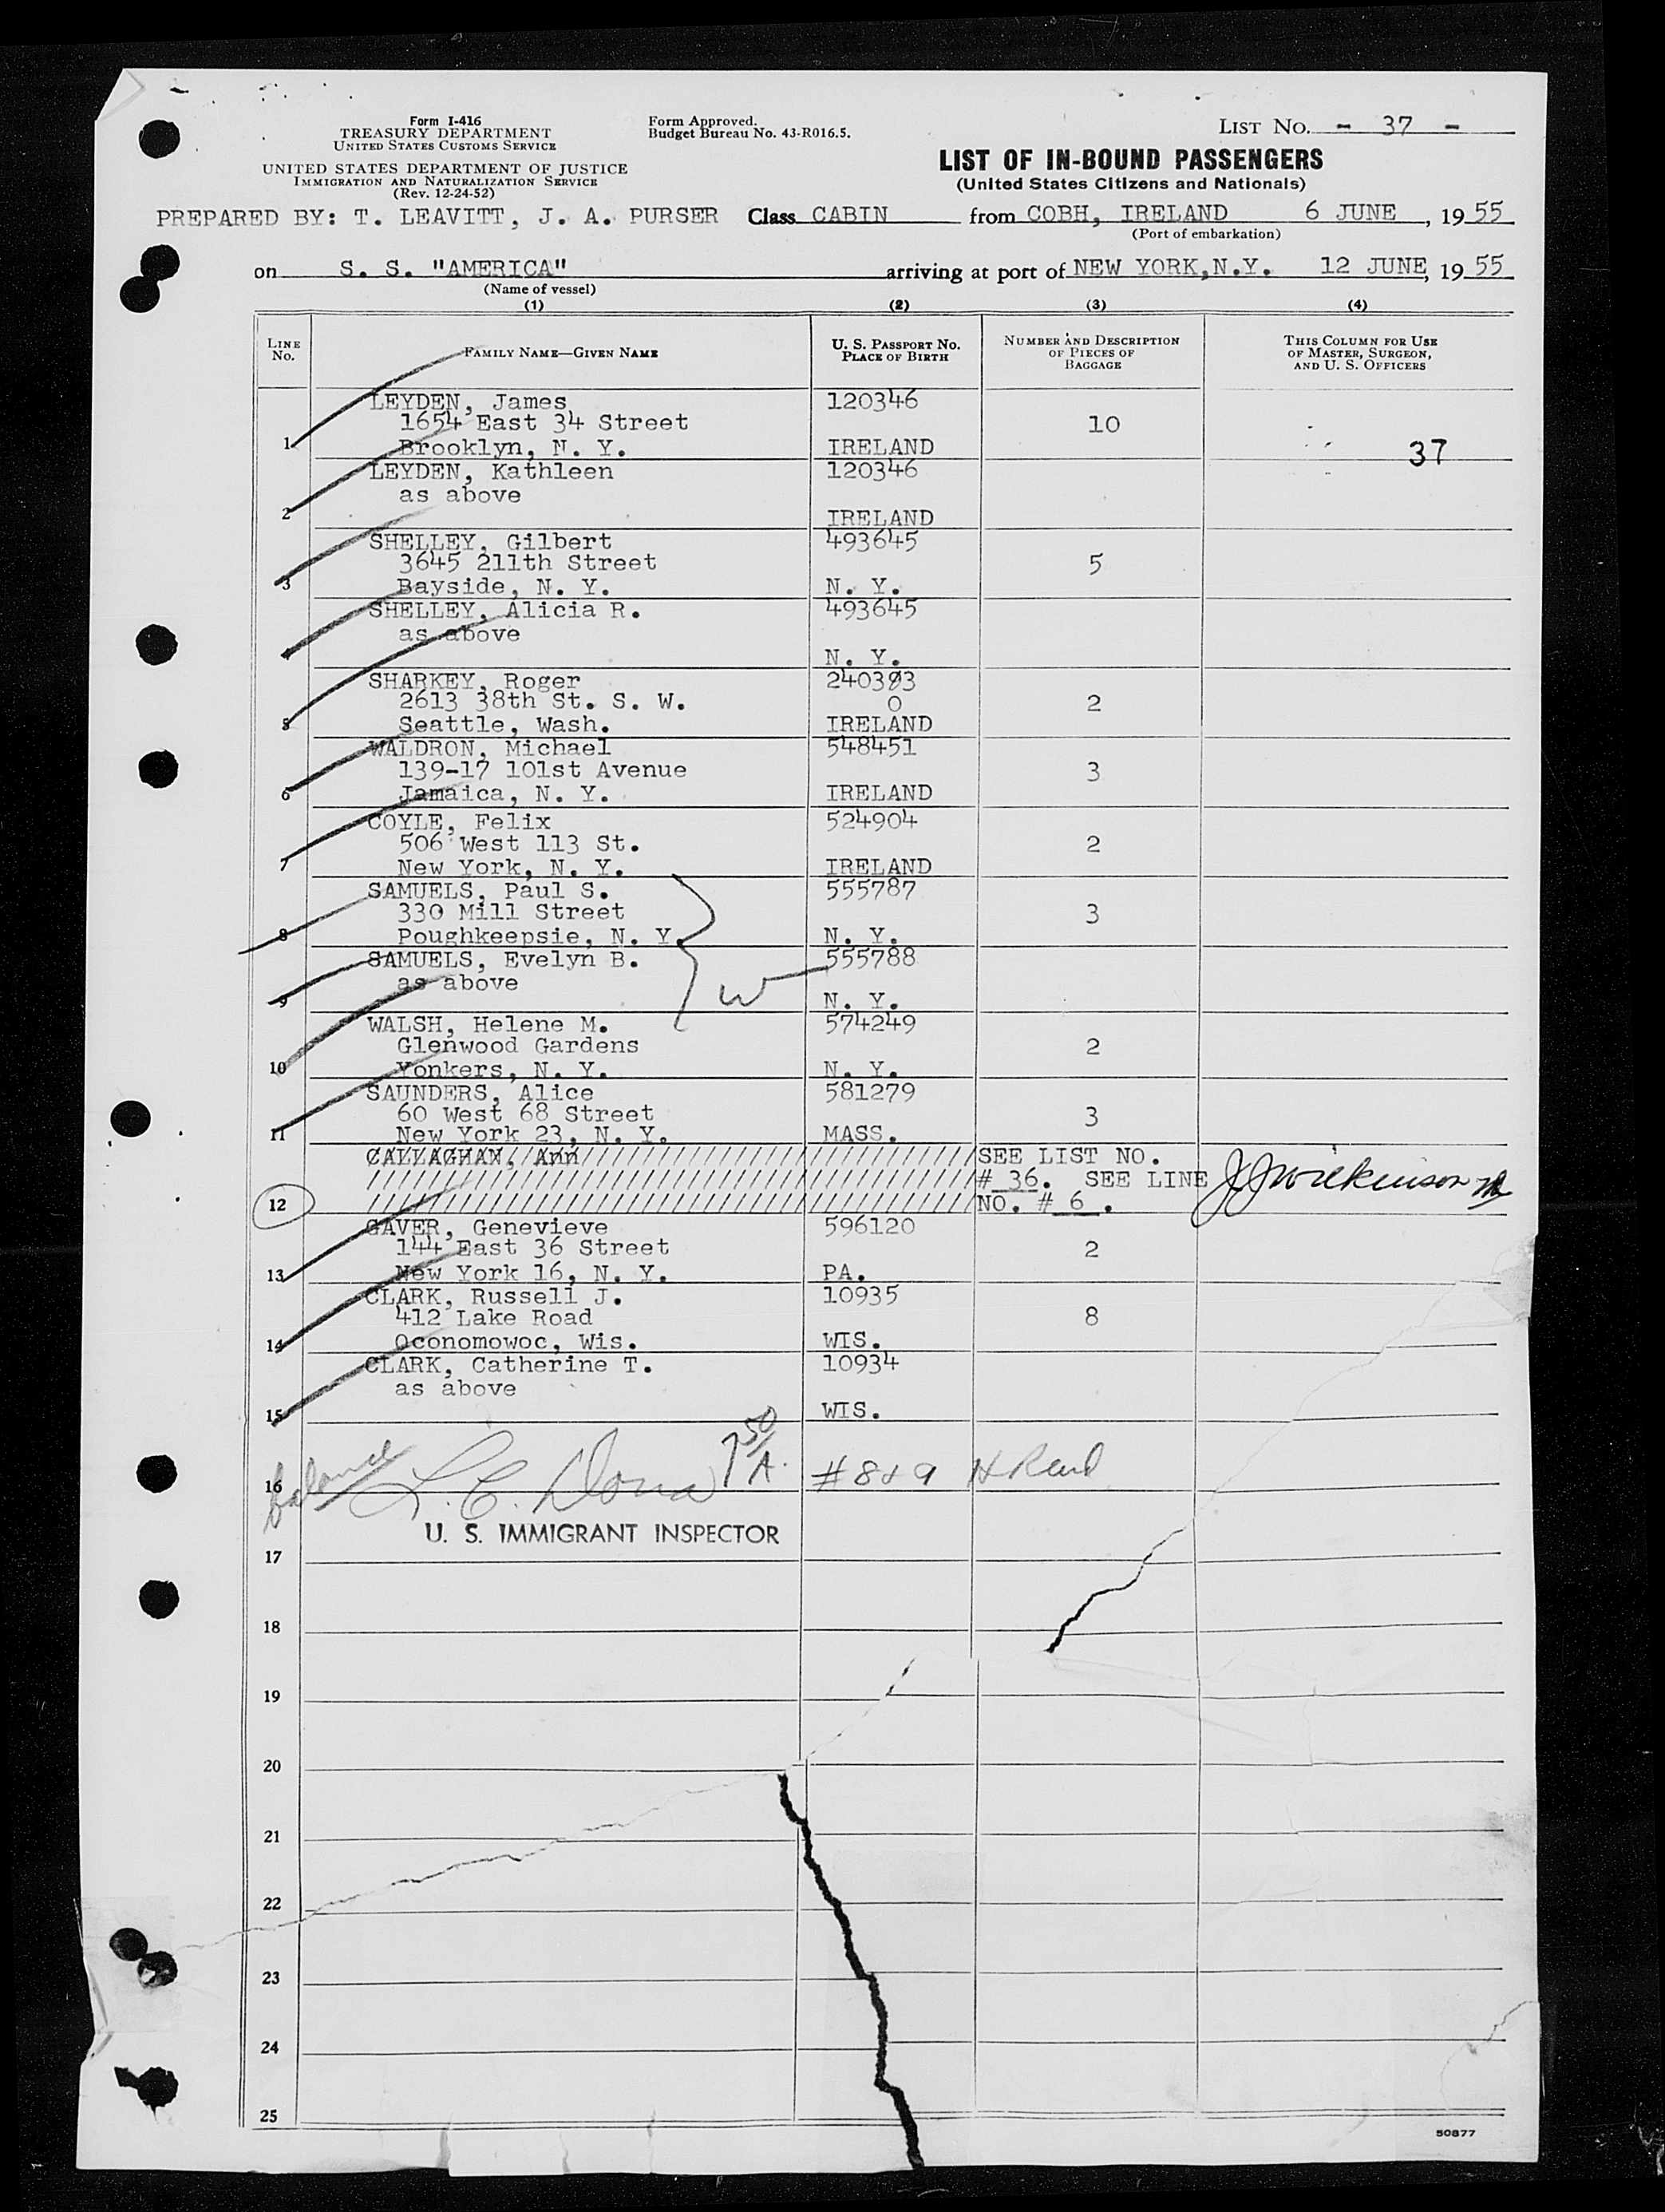 Form I-416
TREASURY DEPARTMENT
UNITED STATES CUSTOMS SERVICE
UNITED STATES DEPARTMENT OF JUSTICE
IMMIGRATION AND NATURALIZATION SERVICE
(Rev. 12-24-52)
Form Approved.
Budget Bureau No. 43-R016.5.
LIST NO. - 37 -
LIST OF IN-BOUND PASSENGERS
(United States Citizens and Nationals)
PREPARED BY: T. LEAVITT, J. A. PURSER Class CABIN from COBH, IRELAND 6 JUNE, 1955
(Port of embarkation)
on S. S. "AMERICA" arriving at port of NEW YORK, N.Y. 12 JUNE, 1955
(Name of vessel)
(1) (2) (3) (4)
LINE No.
FAMILY NAME—GIVEN NAME
U. S. PASSPORT NO.
PLACE OF BIRTH
NUMBER AND DESCRIPTION
OF PIECES OF
BAGGAGE
THIS COLUMN FOR USE
OF MASTER, SURGEON,
AND U. S. OFFICERS
LEYDEN, James 120346
1654 East 34 Street 10
1 Brooklyn, N. Y. IRELAND 37
LEYDEN, Kathleen 120346
as above
2 IRELAND
SHELLEY, Gilbert 493645
3645 211th Street 5
3 Bayside, N. Y. N. Y.
SHELLEY, Alicia R. 493645
as above
4 N. Y.
SHARKEY, Roger 240393
2613 38th St. S. W. 0 2
5 Seattle, Wash. IRELAND
WALDRON, Michael 548451
139-17 101st Avenue 3
6 Jamaica, N. Y. IRELAND
COYLE, Felix 524904
506 West 113 St. 2
7 New York, N. Y. IRELAND
SAMUELS, Paul S. 555787
330 Mill Street 3
8 Poughkeepsie, N. Y. N. Y.
SAMUELS, Evelyn B. 555788
as above W
9 N. Y.
WALSH, Helene M. 574249
Glenwood Gardens 2
10 Yonkers, N. Y. N. Y.
SAUNDERS, Alice 581279
60 West 68 Street 3
11 New York 23, N. Y. MASS.
CALLAGHAN, Ann SEE LIST NO.
# 36. SEE LINE JJ Wilkinson
12 NO. # 6 .
GAVER, Genevieve 596120
144 East 36 Street 2
13 New York 16, N. Y. PA.
CLARK, Russell J. 10935
412 Lake Road 8
14 Oconomowoc, Wis. WIS.
CLARK, Catherine T. 10934
as above
15 WIS.
16 balance L. C. Dona 750/A. #8 & 9
U. S. IMMIGRANT INSPECTOR
17
18
19
20
21
22
23
24
25
50877